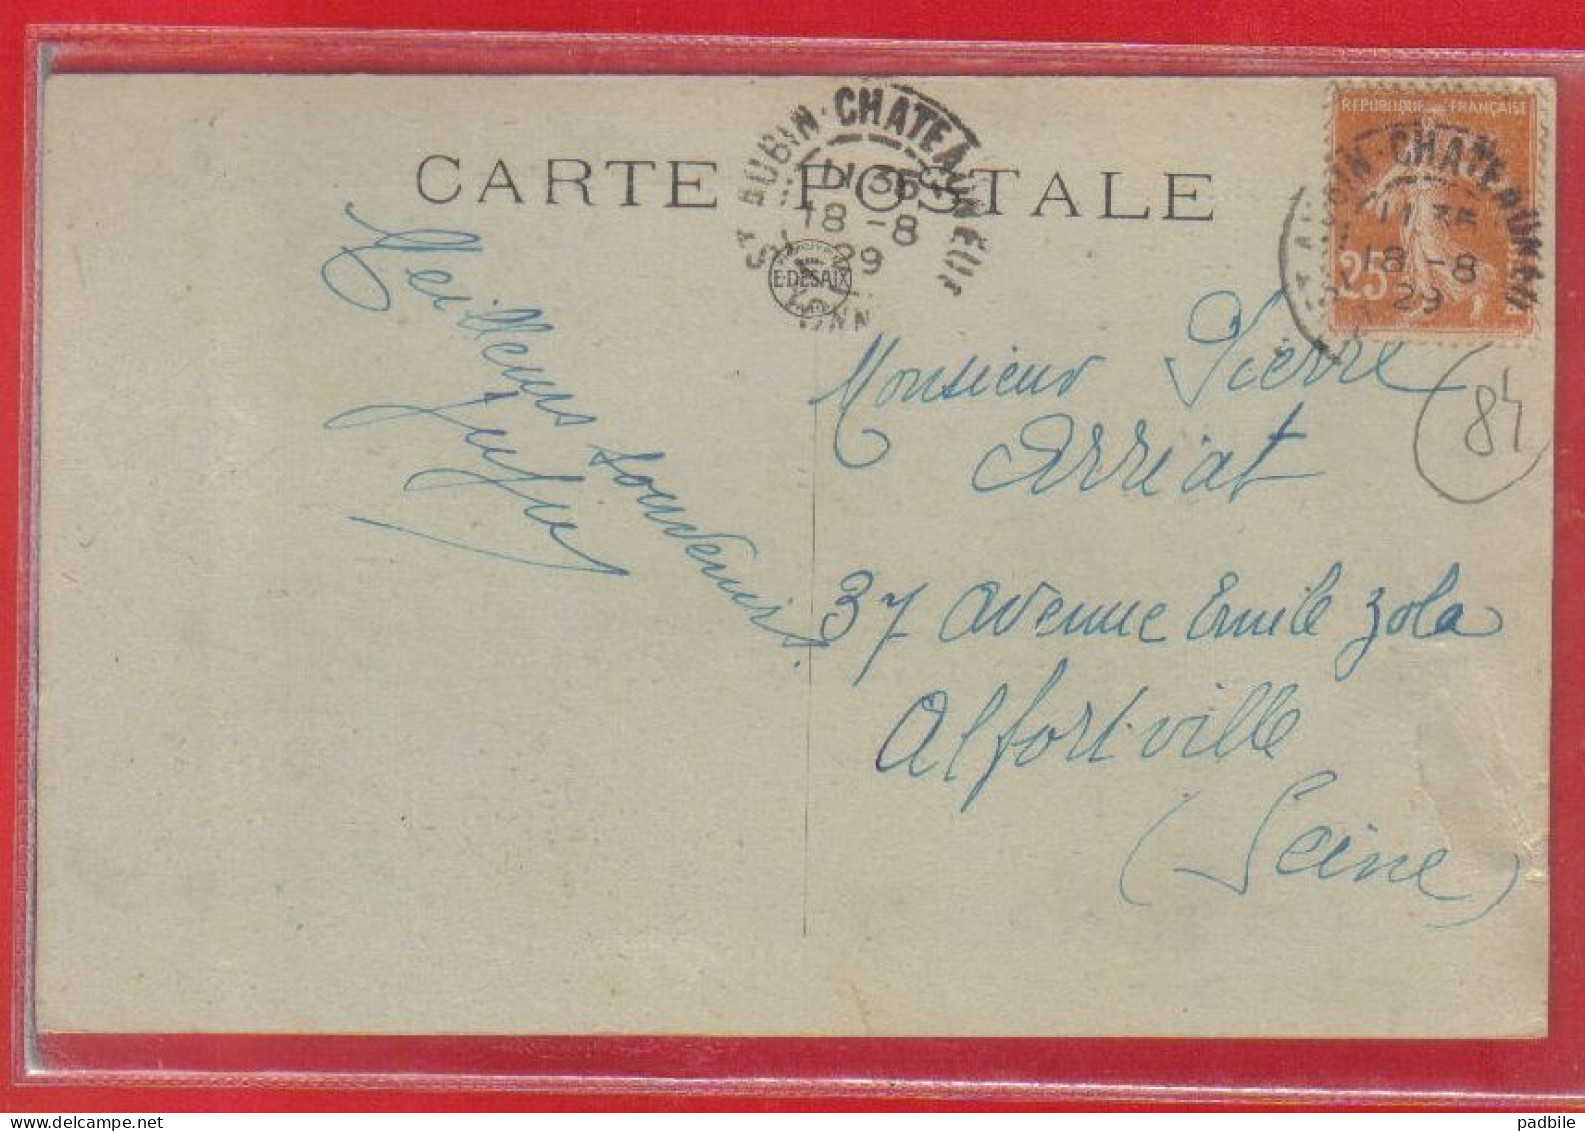 CARTE POSTALE
ST AUBIN-CHATEAUNEUF
11 35
18 -8
29
YONNE
E·DESAIX
REPUBLIQUE FRANÇAISE
25
ST AUBIN-CHATEAUNEUF
11 35
18 -8
29
84
Meilleurs souvenirs.
Monsieur Pierre
Arriat
37 avenue Emile Zola
Alfortville
(Seine)
padbile